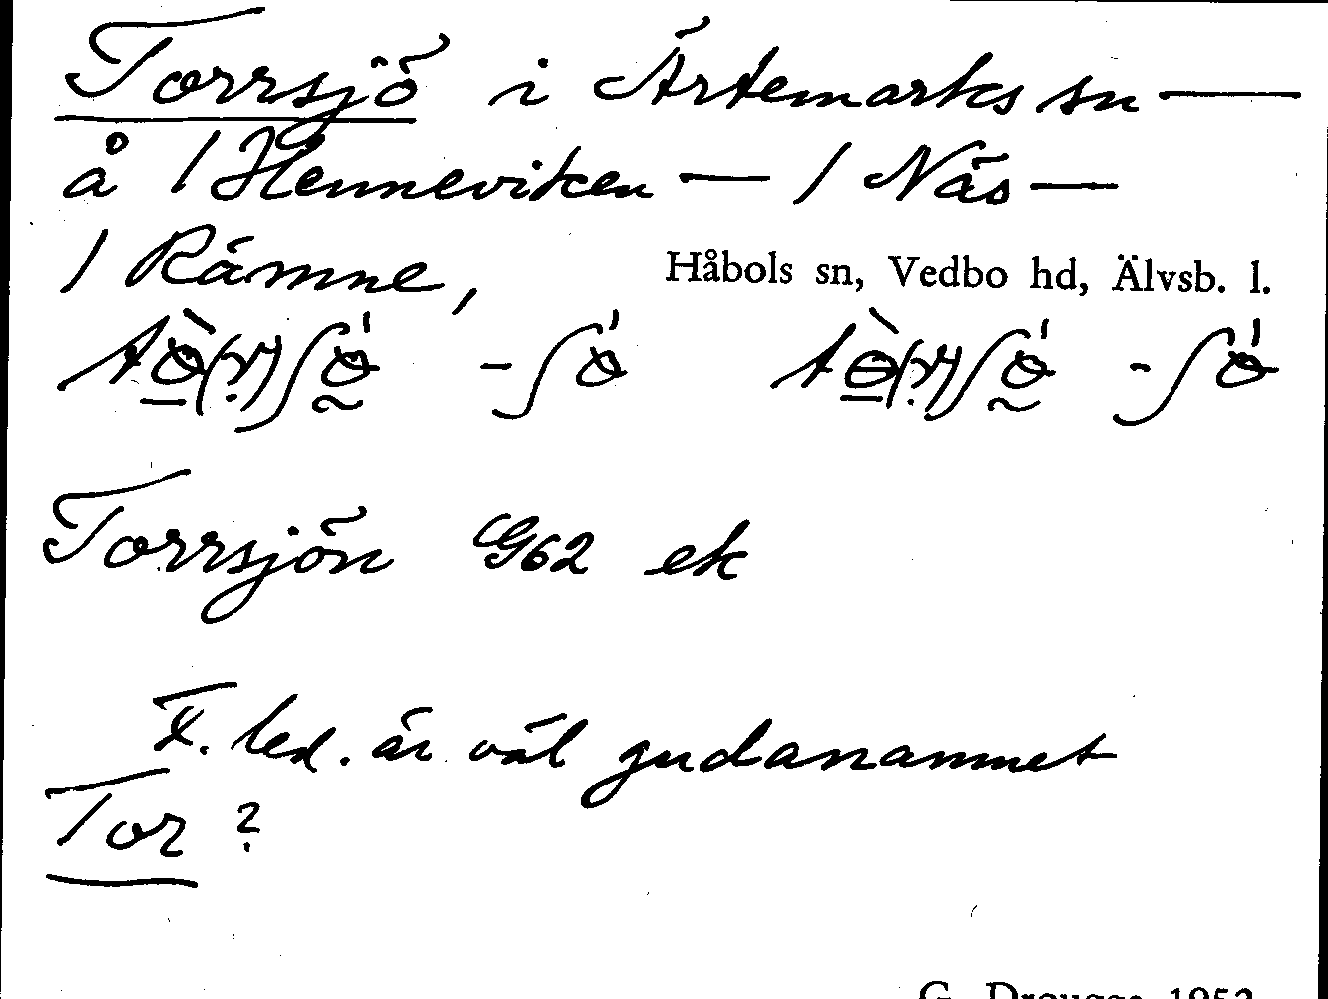 Torrsjö i Ärtemarks sn —
å / Henneviken — / Näs —
/ Rämne, Håbols sn, Vedbo hd, Älvsb. l.
Torrsjön G62 ek
F. led. är väl gudanamnet
Tor ?
G. Drougge 1952